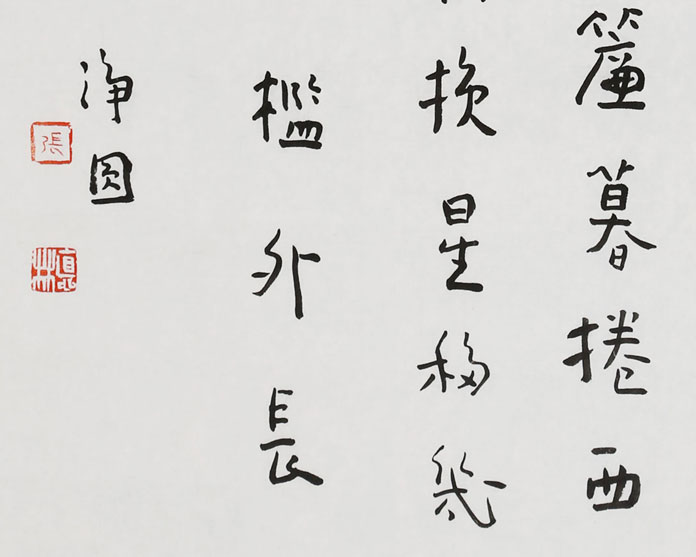 簾暮捲西
换星移幾
檻外長
淨圓
張